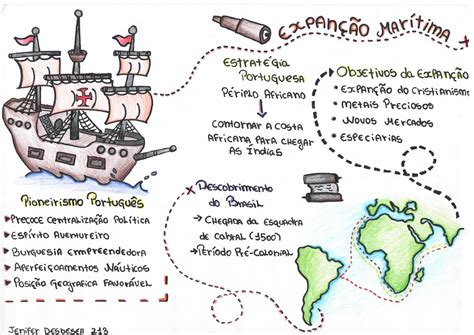 EXPANÇÃO MARÍTIMA
ESTRATÉGIA
PORTUGUESA
PÉRIPLO AFRICANO
CONTORNAR A COSTA
AFRICANA PARA CHEGAR
AS ÍNDIAS
OBJETIVOS DA EXPANÇÃO
EXPANÇÃO DO CRISTIANISMO
METAIS PRECIOSOS
NOVOS MERCADOS
ESPECIARIAS
PIONEIRISMO PORTUGUÊS
PRECOCE CENTRALIZAÇÃO POLÍTICA
ESPÍRITO AVENTUREIRO
BURGUESIA EMPREENDEDORA
APERFEIÇOAMENTOS NÁUTICOS
POSIÇÃO GEOGRAFICA FAVORÁVEL
DESCOBRIMENTO
DO BRASIL
CHEGADA DA ESQUADRA
DE CABRAL (1500)
PERÍODO PRÉ-COLONIAL
JENIFER DESBESELL 213